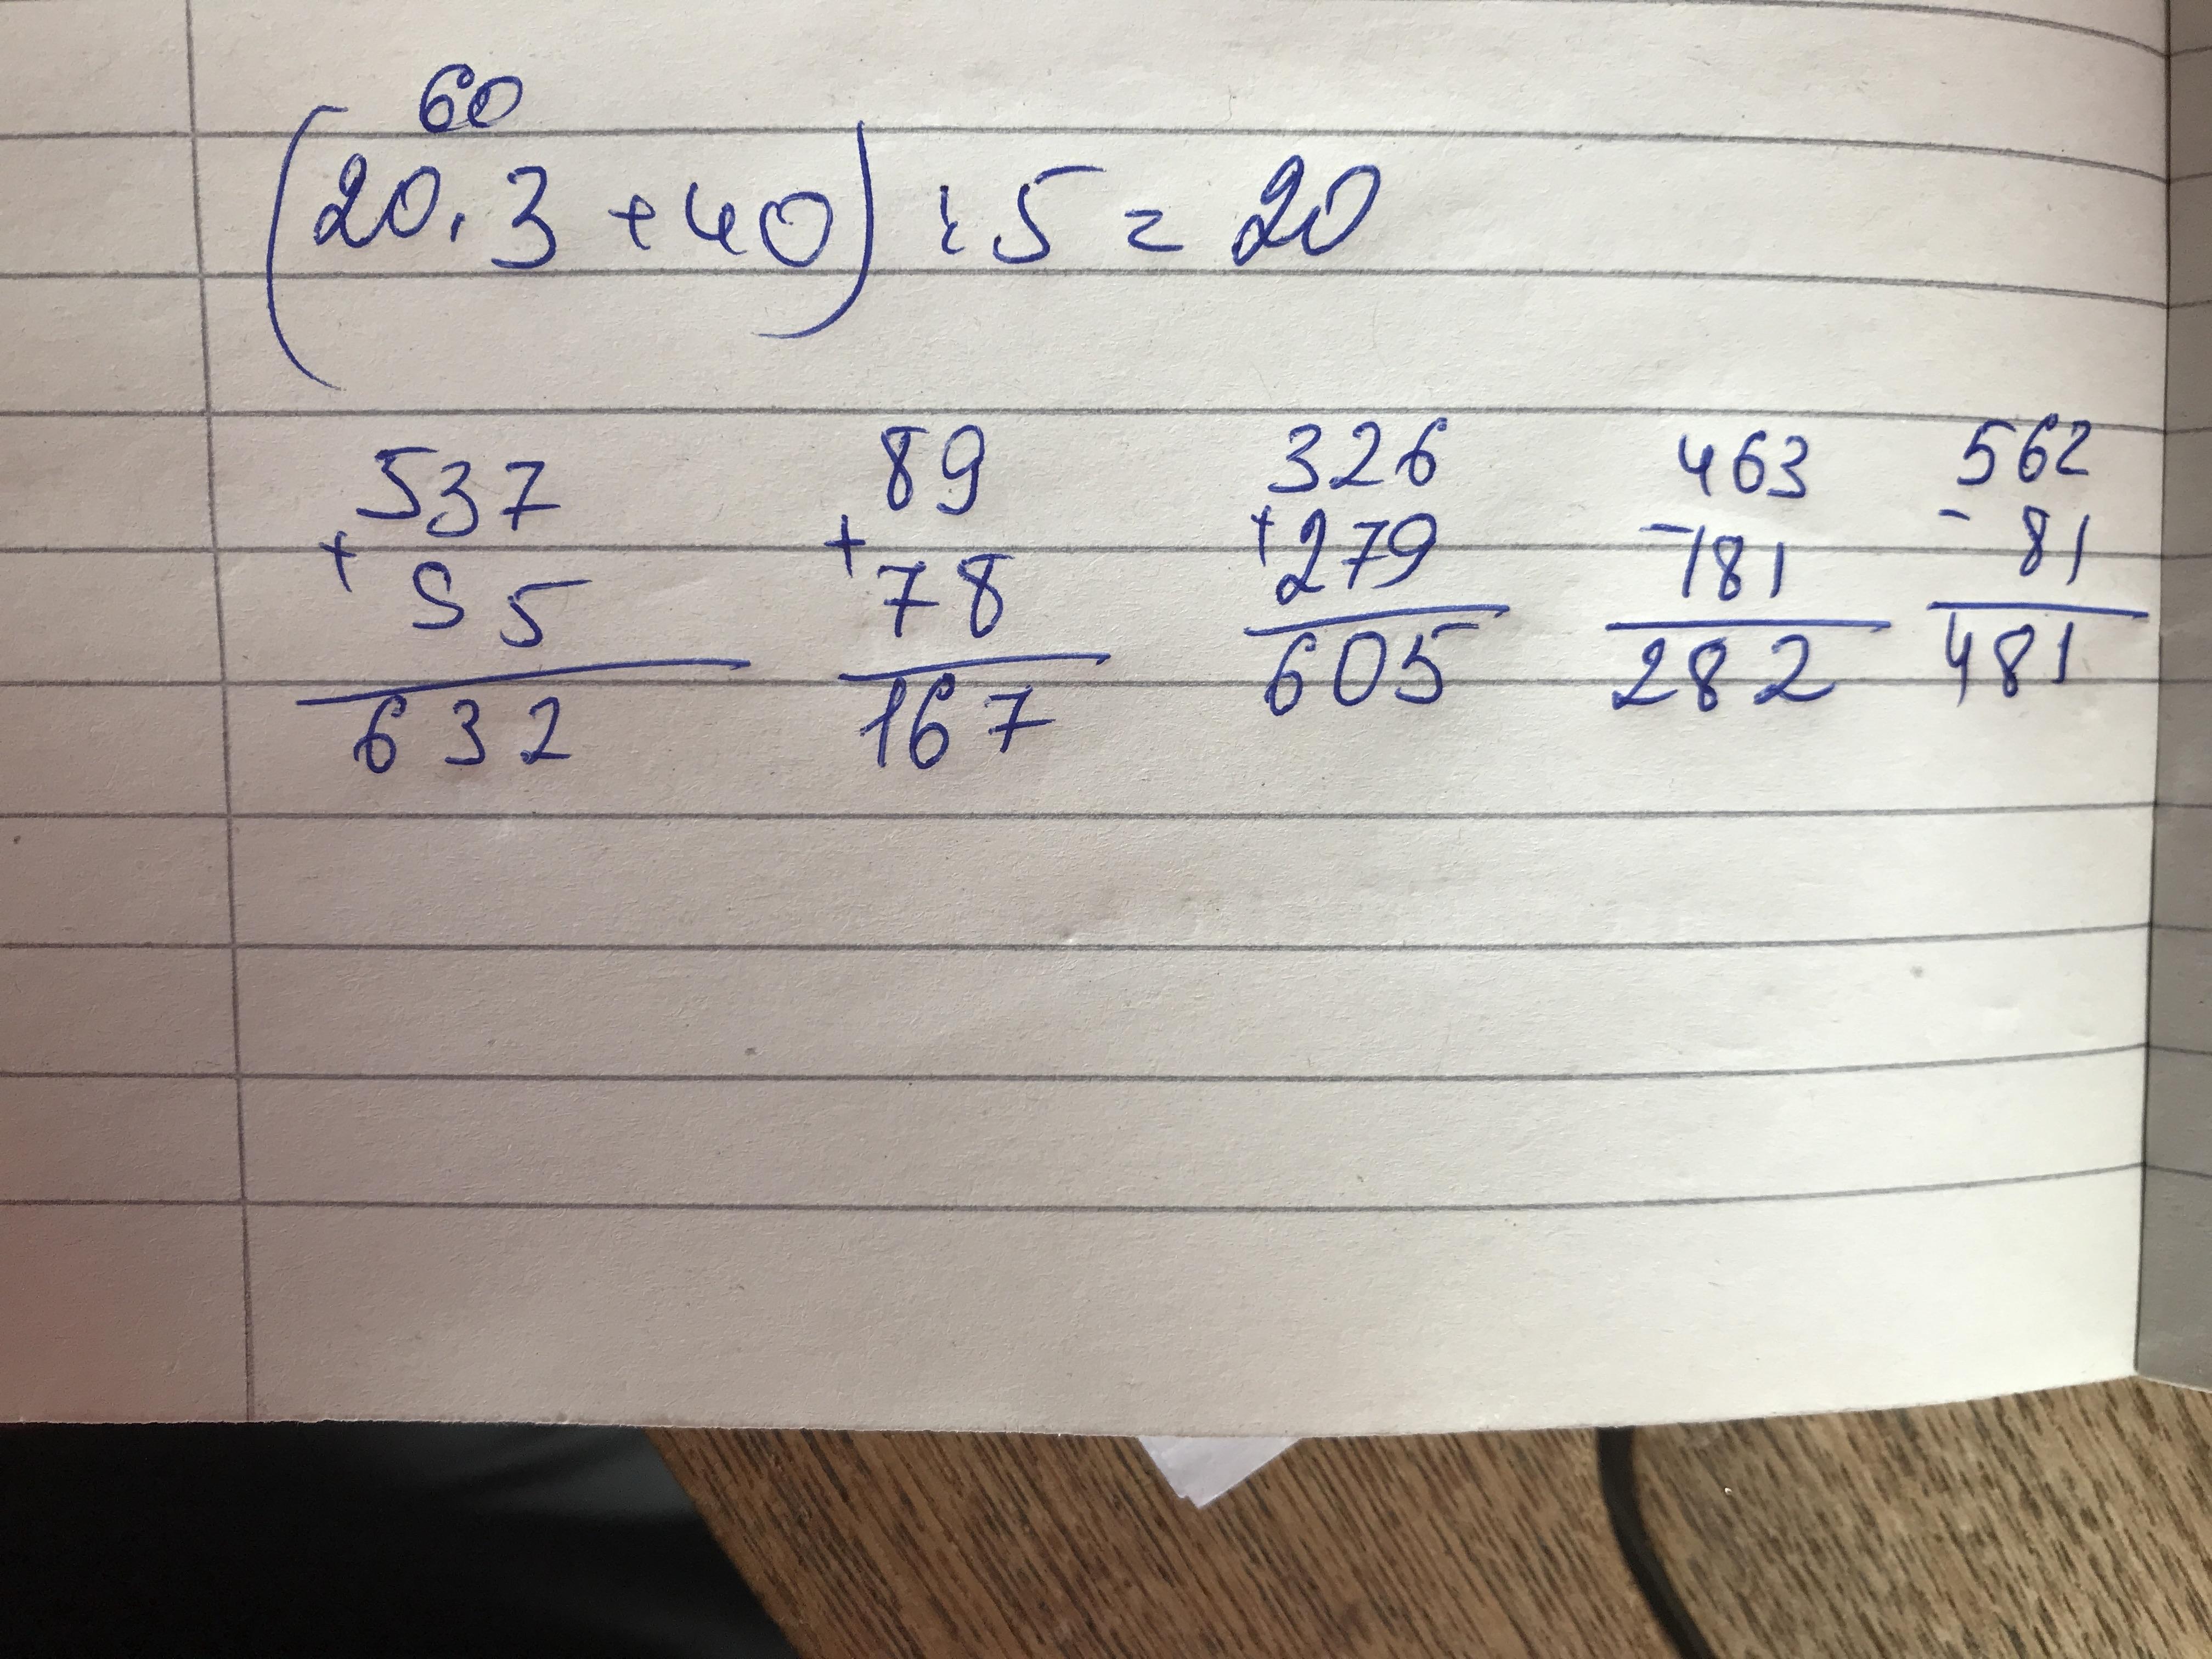 60
(20.3+40):5=20
537 89 326 463 562
+ 95 + 78 +279 -181 - 81
632 167 605 282 481